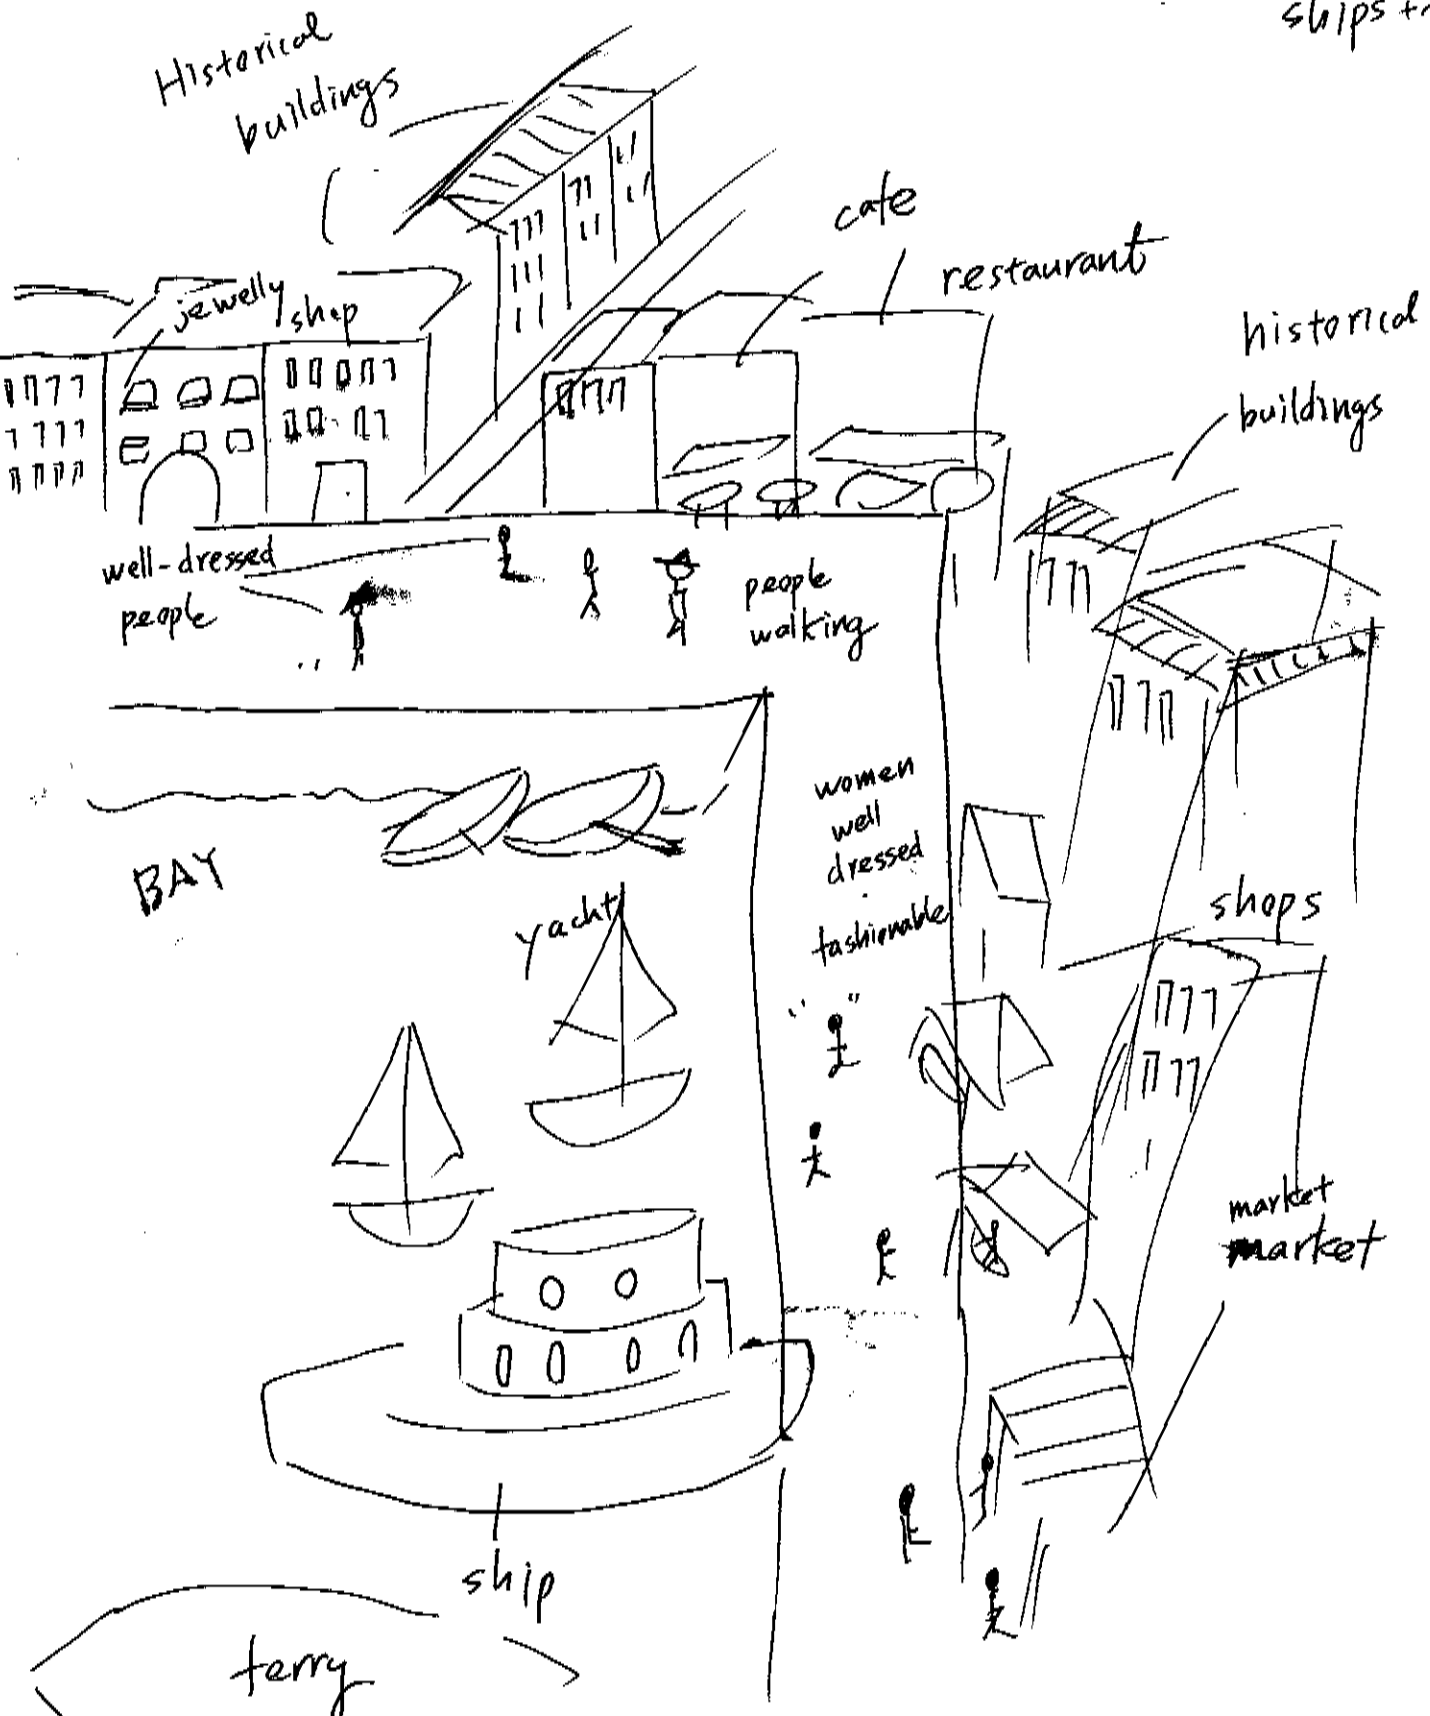 ships
Historical
buildings
cafe
restaurant
jewelly shop
historical
buildings
well-dressed
people
people
walking
women
well
dressed
fashionable
BAY
yacht
shops
market
market
ship
ferry